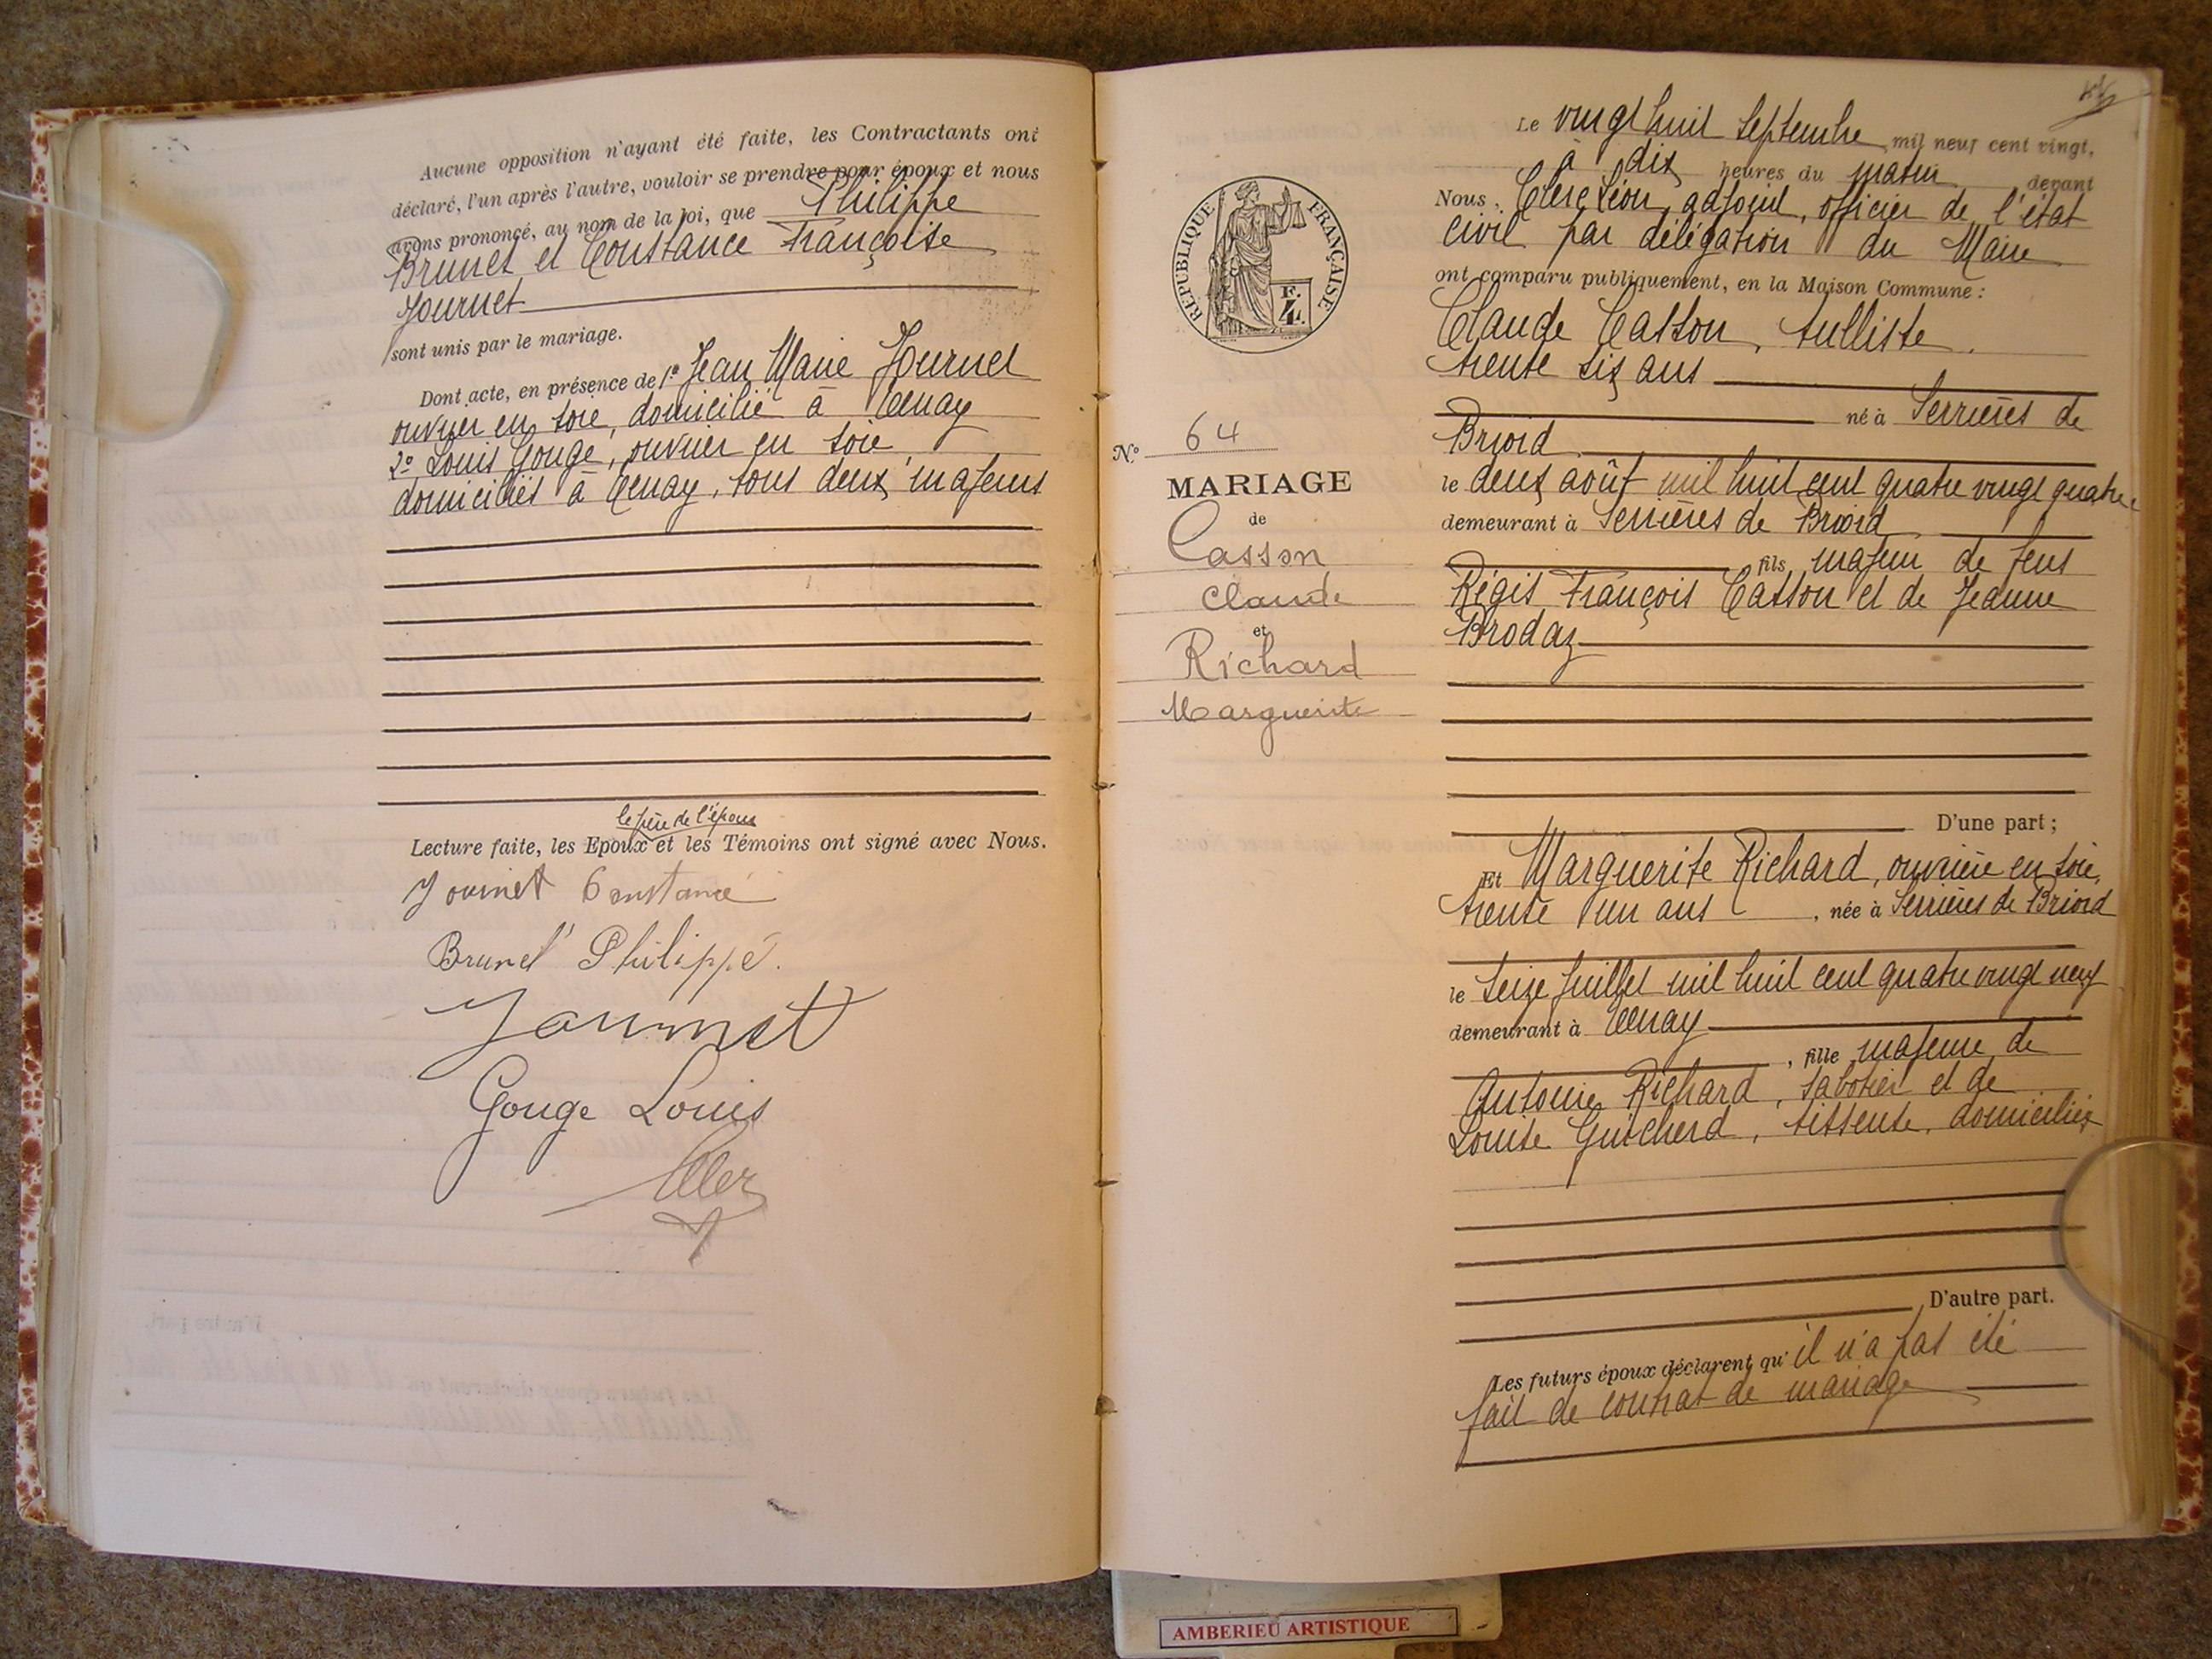 Aucune opposition n'ayant été faite, les Contractants ont
déclaré, l'un après l'autre, vouloir se prendre pour époux et nous
avons prononcé, au nom de la loi, que Philippe
Brunet et Constance Françoise
Journet
sont unis par le mariage.
Dont acte, en présence de 1º Jean Marie Journet
ouvrier en soie, domicilié à Tenay
2º Louis Gouge, ouvrier en soie
domiciliés à Tenay, tous deux majeurs
le père de l'époux
Lecture faite, les Epoux et les Témoins ont signé avec Nous.
Journet Constance
Brunet Philippe.
Journet
Gouge Louis
Nº 64
MARIAGE
de
Casson
Claude
et
Richard
Marguerite
REPUBLIQUE FRANÇAISE
F.
4.
Le vingt huit Septembre mil neuf cent vingt,
à dix heures du matin devant
Nous, Clerc Léon, adjoint, officier de l'état
civil par délégation du Maire
ont comparu publiquement, en la Maison Commune :
Claude Casson, tulliste,
trente six ans
né à Serrières de
Briord
le deux août mil huit cent quatre vingt quatre
demeurant à Serrières de Briord
fils majeur de feus
Régis François Casson et de Jeanne
Brodaz
D'une part ;
Et Marguerite Richard, ouvrière en soie,
trente un ans, née à Serrières de Briord
le seize juillet mil huit cent quatre vingt neuf
demeurant à Tenay
, fille majeure de
Antoine Richard, sabotier et de
Louise Guicherd, tisseuse, domiciliés
D'autre part.
Les futurs époux déclarent qu'il n'a pas été
fait de contrat de mariage
AMBERIEU ARTISTIQUE